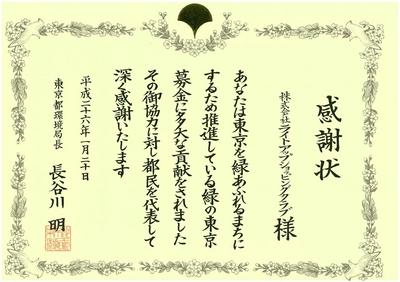 感謝状
株式会社ライトアップショッピングクラブ 様
あなたは東京を緑あふれるまちに
するため推進している緑の東京
募金に多大な貢献をされました
その御協力に対し都民を代表して
深く感謝いたします
平成二十六年一月二十日
東京都環境局長 長谷川 明